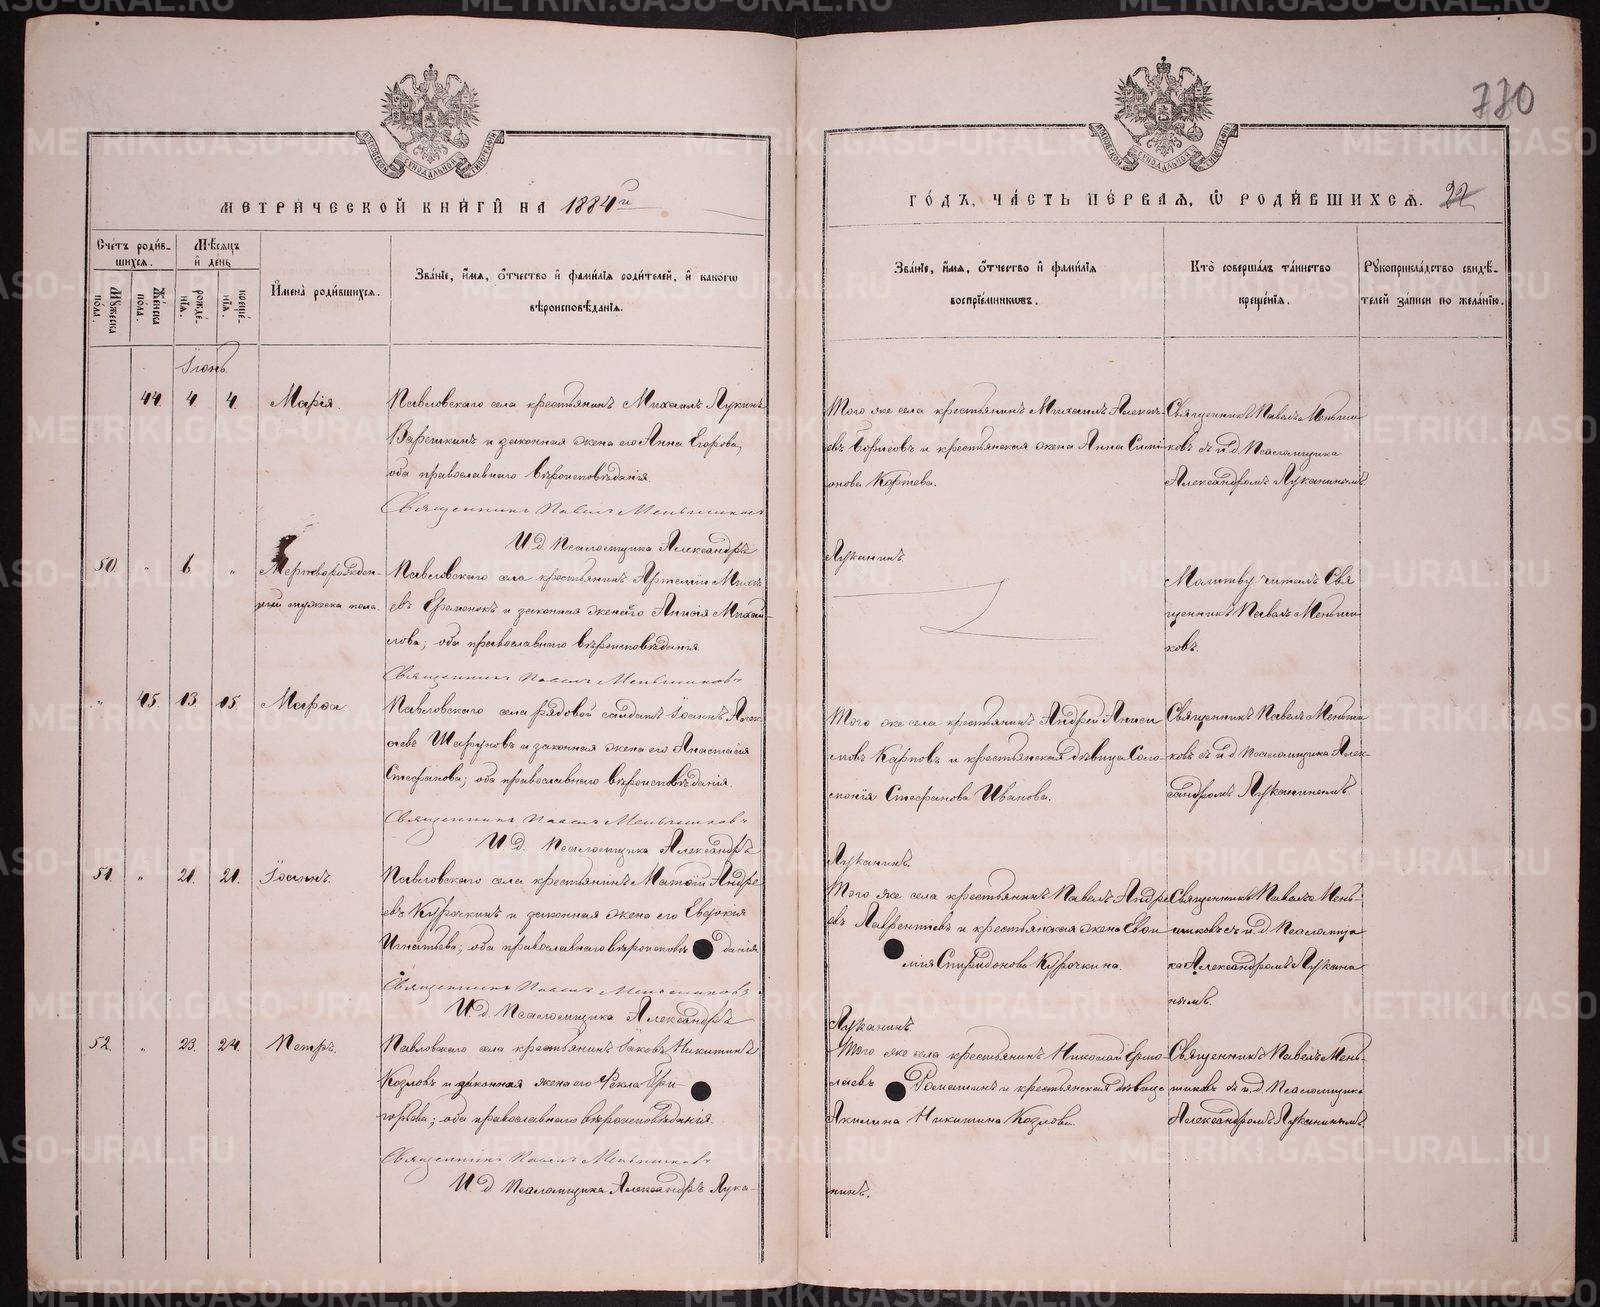 770
МЕТРИЧЕСКОЙ КНИГИ НА 1884й
ГОДЪ, ЧАСТЬ ПЕРВАЯ, Ѡ РОДИВШИХСЯ. 22
Счетъ родив-
шихся.
Мѣсяцъ
и день
Мужеска
пола.
Женска
пола.
рожде-
нія.
креще-
нія.
Имена родившихся.
Званіе, имя, отчество и фамилія родителей, и какогѡ
вѣроисповѣданія.
Званіе, имя, отчество и фамилія
воспріемниковъ.
Кто совершалъ таинство
крещенія.
Рукоприкладство свидѣ-
телей записи по желанію.
Іюнь
44. 4. 4. Марія.
Павловскаго села крестьянинъ Михаилъ Лукинъ
и законная жена его Анна Егорова;
оба православнаго вѣроисповѣданія.
Священникъ Павелъ Меньшиковъ
И. д. Псаломщика Александръ
Того же села крестьянинъ Михаилъ
и крестьянская жена Анна
онова
Священникъ Павелъ Меньши
ковъ съ и. д. Псаломщика
Александромъ Луканинымъ.
Луканинъ.
50 " 6 " Мертворожден-
ный мужеска пола.
Павловскаго села крестьянинъ Артемій
евъ и законная жена его Анисія Михай-
лова; оба православнаго вѣроисповѣданія.
Священникъ Павелъ Меньшиковъ
Молитву читалъ Свя
щенникъ Павелъ Меньши
ковъ.
" 45 13. 15. Марѳа
Павловскаго села рядовой солдатъ Іоаннъ Алек
сѣевъ и законная жена его Анастасія
Стефанова; оба православнаго вѣроисповѣданія.
Священникъ Павелъ Меньшиковъ
И. д. Псаломщика Александръ
Того же села крестьянинъ Андрей Аниси
мовъ Карповъ и крестьянская дѣвица Соло-
монія Стефанова Иванова.
Священникъ Павелъ Меньши
ковъ съ и. д. Псаломщика Алек-
сандромъ Луканинымъ.
Луканинъ.
51 " 21. 21. Іоаннъ.
Павловскаго села крестьянинъ Матѳій Андре
евъ Курочкинъ и законная жена его Евдокия
Игнатьева; оба православнаго вѣроисповѣ данія.
Священникъ Павелъ Меньшиковъ
И. д. Псаломщика Александръ
Того же села крестьянинъ Павелъ Андре
евъ Лаврентьевъ и крестьянская жена Евѳи
мія Спиридонова Курочкина.
Священникъ Павелъ Мень-
шиковъ съ и. д. Псаломщи
ка Александромъ Лукани
нымъ.
Луканинъ
52. " 23. 24. Петръ.
Павловскаго села крестьянинъ Іаковъ Никитинъ
Козловъ и законная жена его Ѳекла Гри
горьева; оба православнаго вѣроисповѣданія.
Священникъ Павелъ Меньшиковъ
И. д. Псаломщика Александръ Лука-
Того же села крестьянинъ Николай Ермо
лаевъ Ромашинъ и крестьянская дѣвица
Акилина Никитина Козлова.
Священникъ Павелъ Мень-
шиковъ съ и. д. Псаломщика
Александромъ Луканинымъ
нинъ.
METRIKI.GASO-URAL.RU